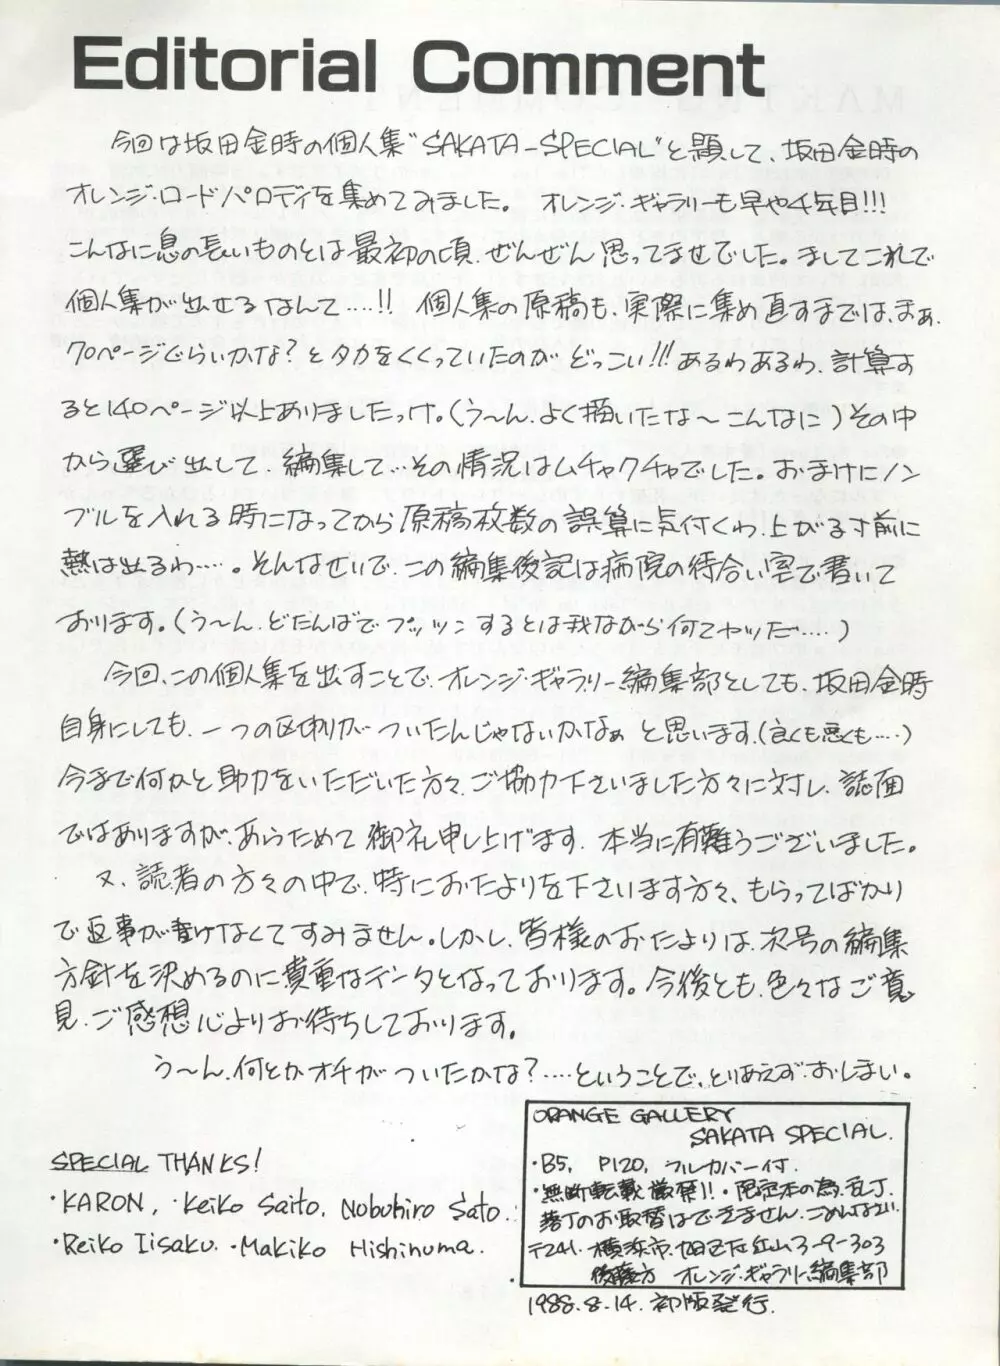 Editorial Comment
今回は坂田金時の個人集"SAKATA-SPECIAL"と題して、坂田金時の
オレンジ・ロードパロディを集めてみました。 オレンジ・ギャラリーも早や4年目!!!
こんなに息の長いものとは最初の頃、ぜんぜん思ってませでした。ましてこれで
個人集が出せるなんて……!! 個人集の原稿も、実際に集め直すまでは、まぁ、
70ページぐらいかな?とタカをくくっていたのが どっこい!!!あるわあるわ、計算す
ると140ページ以上ありましたっけ。(う〜ん、よく描いたな〜こんなに)その中
から選び出して、編集して…その情況はムチャクチャでした。おまけにノン
ブルを入れる時になってから原稿枚数の誤算に気付くわ、上がる寸前に
熱は出るわ……。そんなせいで、この編集後記は病院の待合い室で書いて
おります。(う〜ん、どたんばでプッツンするとは我ながら何てヤツだ……)
今回、この個人集を出すことで、オレンジ・ギャラリー編集部としても、坂田金時
自身にしても、一つの区切りがついたんじゃないかなぁ と思います。(良くも悪くも……)
今まで何かと助力をいただいた方々、ご協力下さいました方々に対し、誌面
ではありますが、あらためて御礼申し上げます。本当に有難うございました。
又、読者の方々の中で、特におたよりを下さいます方々、もらってばかり
で返事が書けなくてすみません。しかし、皆様のおたよりは、次号の編集
方針を決めるのに貴重なデータとなっております。今後とも、色々なご意
見、ご感想心よりお待ちしております。
う〜ん、何とかオチがついたかな?……ということで、とりあえず・おしまい。
SPECIAL THANKS!
・KARON, ・Keiko Saito, Nobuhiro Sato.
・Reiko Iisaku. ・Makiko Hishinuma.
ORANGE GALLERY
SAKATA SPECIAL.
・B5, P120, フルカバー付.
・無断転載厳禁!!・限定本の為、乱丁、
落丁のお取替はできません。ごめんなさい。
〒241. 横浜市旭区左近山3-9-303
後藤方 オレンジ・ギャラリー編集部
1988.8.14. 初版発行.